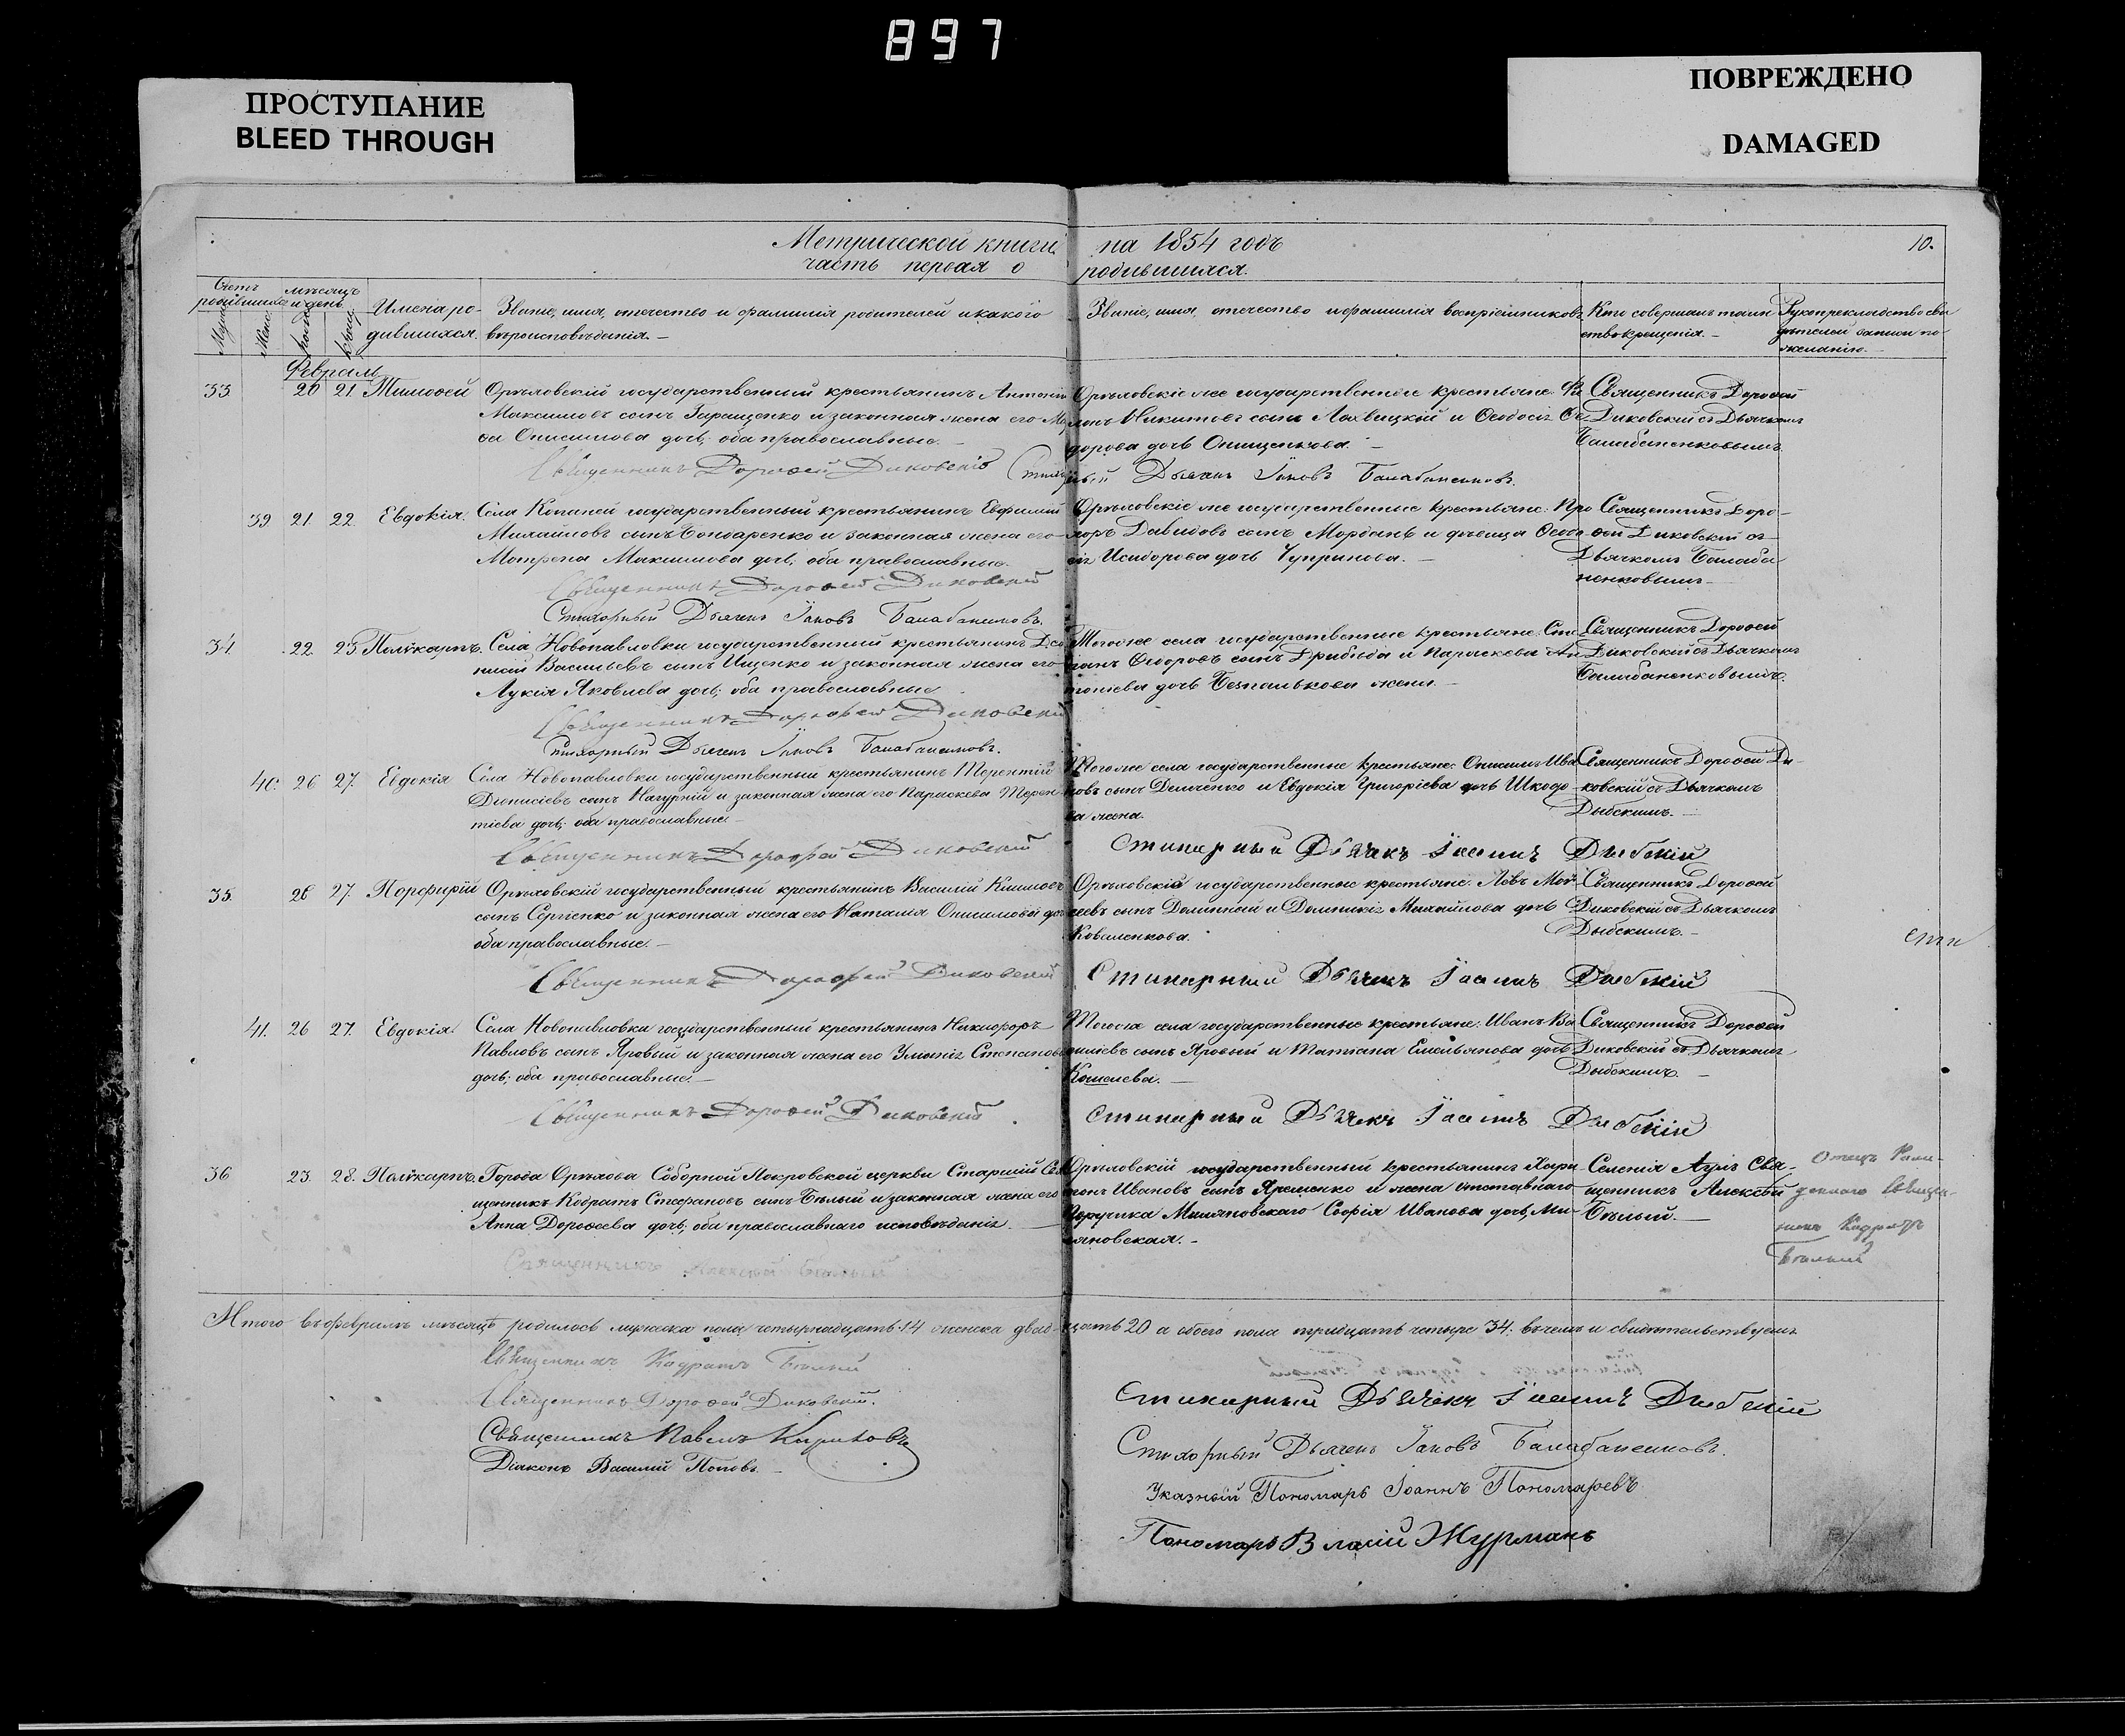 897
ПРОСТУПАНИЕ
BLEED THROUGH
ПОВРЕЖДЕНО
DAMAGED
Метрической книги на 1854 годъ
10.
часть первая о родившихся.
Счетъ родившихся
Муж.
Жен.
мѣсяцъ и день
рожд.
крещ.
Имена ро-
дившихся.
Званіе, имя, отчество и фамилія родителей и какого
вѣроисповѣданія.
Званіе, имя, отчество и фамилія воспріемниковъ
Кто совершалъ таин
ство крещенія.
Рукоприкладство сви
дѣтелей записи по
желанію.
Февраль
33. 20 21. Тимоѳей
Орѣховскій государственный крестьянинъ Антоній
Максимовъ сынъ Геращенко и законная жена его
Онисимова дочь; оба православные.
Священникъ Дороѳей Диковскій
Орѣховскіе же государственные крестьяне:
Никитовъ сынъ и Ѳеодосія Ѳе
дорова дочь Онищенкова.
Стихарный Дьячекъ Іаковъ Балабаненковъ.
Священникъ Дороѳей
Диковскій съ Дьячкомъ
Балабаненковымъ.
39. 21. 22. Евдокія.
Села Копаней государственный крестьянинъ Евфимій
Михайловъ сынъ Бондаренко и законная жена его
Матрона Максимова дочь; оба православные.
Священникъ Дороѳей Диковскій
Стихарный Дьячекъ Іаковъ Балабаненковъ.
Орѣховскіе же государственные крестьяне: Про
хоръ Давидовъ сынъ Мордань и дѣвица Ѳеодо
сія Исидорова дочь Чупринова.
Священникъ Доро-
ѳей Диковскій съ
Дьячкомъ Балаба
ненковымъ
34. 22. 23 Поликарпъ.
Села Новопавловки государственный крестьянинъ Діо
нисій Васильевъ сынъ Ищенко и законная жена его
Лукія Яковлева дочь; оба православные
Священникъ Дороѳей Диковскій
Стихарный Дьячекъ Іаковъ Балабаненковъ.
Тогоже села государственные крестьяне: Сте
панъ Ѳедоровъ сынъ Дрибъда и Параскева Ан
тоніева дочь Безпалькова жена.
Священникъ Дороѳей
Диковскій съ Дьячкомъ
Балабаненковымъ.
40. 26 27. Евдокія
Села Новопавловки государственный крестьянинъ Терентій
Діонисіевъ сынъ Нагурній и законная жена его Параскева Терен
тіева дочь; оба православные
Священникъ Дороѳей Диковскій
Тогоже села государственные крестьяне: Онисимъ Ива
новъ сынъ Демченко и Евдокія Григоріева дочь Шкодо
ва жена.
Стихарный Дьячекъ Дыбскій
Священникъ Дороѳей Ди-
ковскій съ Дьячкомъ
Дыбскимъ.
35. 26 27. Порфирій
Орѣховскій государственный крестьянинъ Василій Климовъ
сынъ Сергіенко и законная жена его Наталія Онисимова дочь
оба православные.
Священникъ Дороѳей Диковскій
Орѣховскіе государственные крестьяне: Левъ Мой
сеевъ сынъ Долинный и Домникія Михайлова дочь
Коваленкова.
Стихарный Дьячекъ Дыбскій
Священникъ Дороѳей
Диковскій съ Дьячкомъ
Дыбскимъ.
41. 26 27. Евдокія
Села Новопавловки государственный крестьянинъ Никифоръ
Павловъ сынъ Яровый и законная жена его Уліянія Степанова
дочь; оба православные.
Священникъ Дороѳей Диковскій
Тогоже села государственные крестьяне: Иванъ Ва
силіевъ сынъ Яровый и Татіана Емельянова дочь
Кошелева.
Стихарный Дьячекъ Дыбскій
Священникъ Дороѳей
Диковскій съ Дьячкомъ
Дыбскимъ.
36 23. 28. Поликарпъ.
Города Орѣхова Соборной Покровской церкви Старшій Свя
щенникъ Кодратъ Стефановъ сынъ Бѣлый и законная жена его
Анна Дороѳеева дочь; оба православнаго исповѣданія.
Священникъ Алексѣй Бѣлый
Орѣховскій государственный крестьянинъ Хари
тонъ Ивановъ сынъ Яременко и жена отставнаго
Поручика Миляновскаго Софія Иванова дочь Ми-
ляновская.
Селенія Свя-
щенникъ Алексѣй
Бѣлый.
Отецъ
Священ-
никъ Кодратъ
Бѣлый
Итого въ февралѣ мѣсяцѣ родилось мужеска пола четырнадцать 14 женска двадцать 20 а обоего пола тридцать четыре 34. въ чемъ и свидѣтельствуемъ
Священникъ Кодратъ Бѣлый
Священникъ Дороѳей Диковскій.
Священникъ Павелъ Кириловъ
Діаконъ Василій Поповъ.
Стихарный Дьячекъ Дыбскій
Стихарный Дьячекъ Іаковъ Балабаненковъ.
Указный Пономарь Іоаннъ Пономаревъ
Пономарь Власій Журманъ